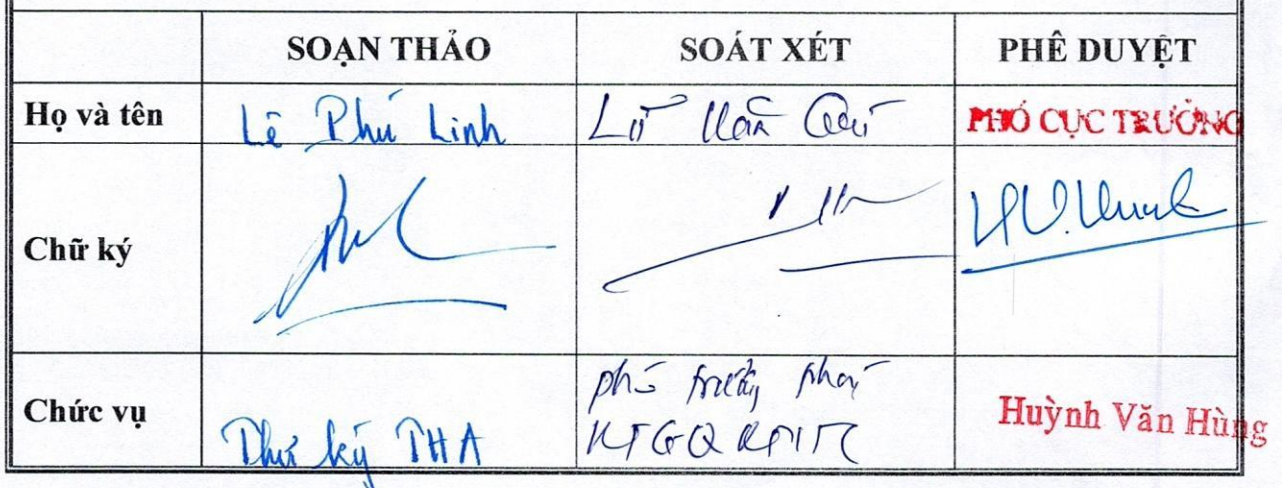 SOẠN THẢO SOÁT XÉT PHÊ DUYỆT
Họ và tên Lê Phú Linh Lữ Văn PHÓ CỤC TRƯỞNG
Chữ ký
Chức vụ phó trưởng phòng
Thư ký THA Huỳnh Văn Hùng